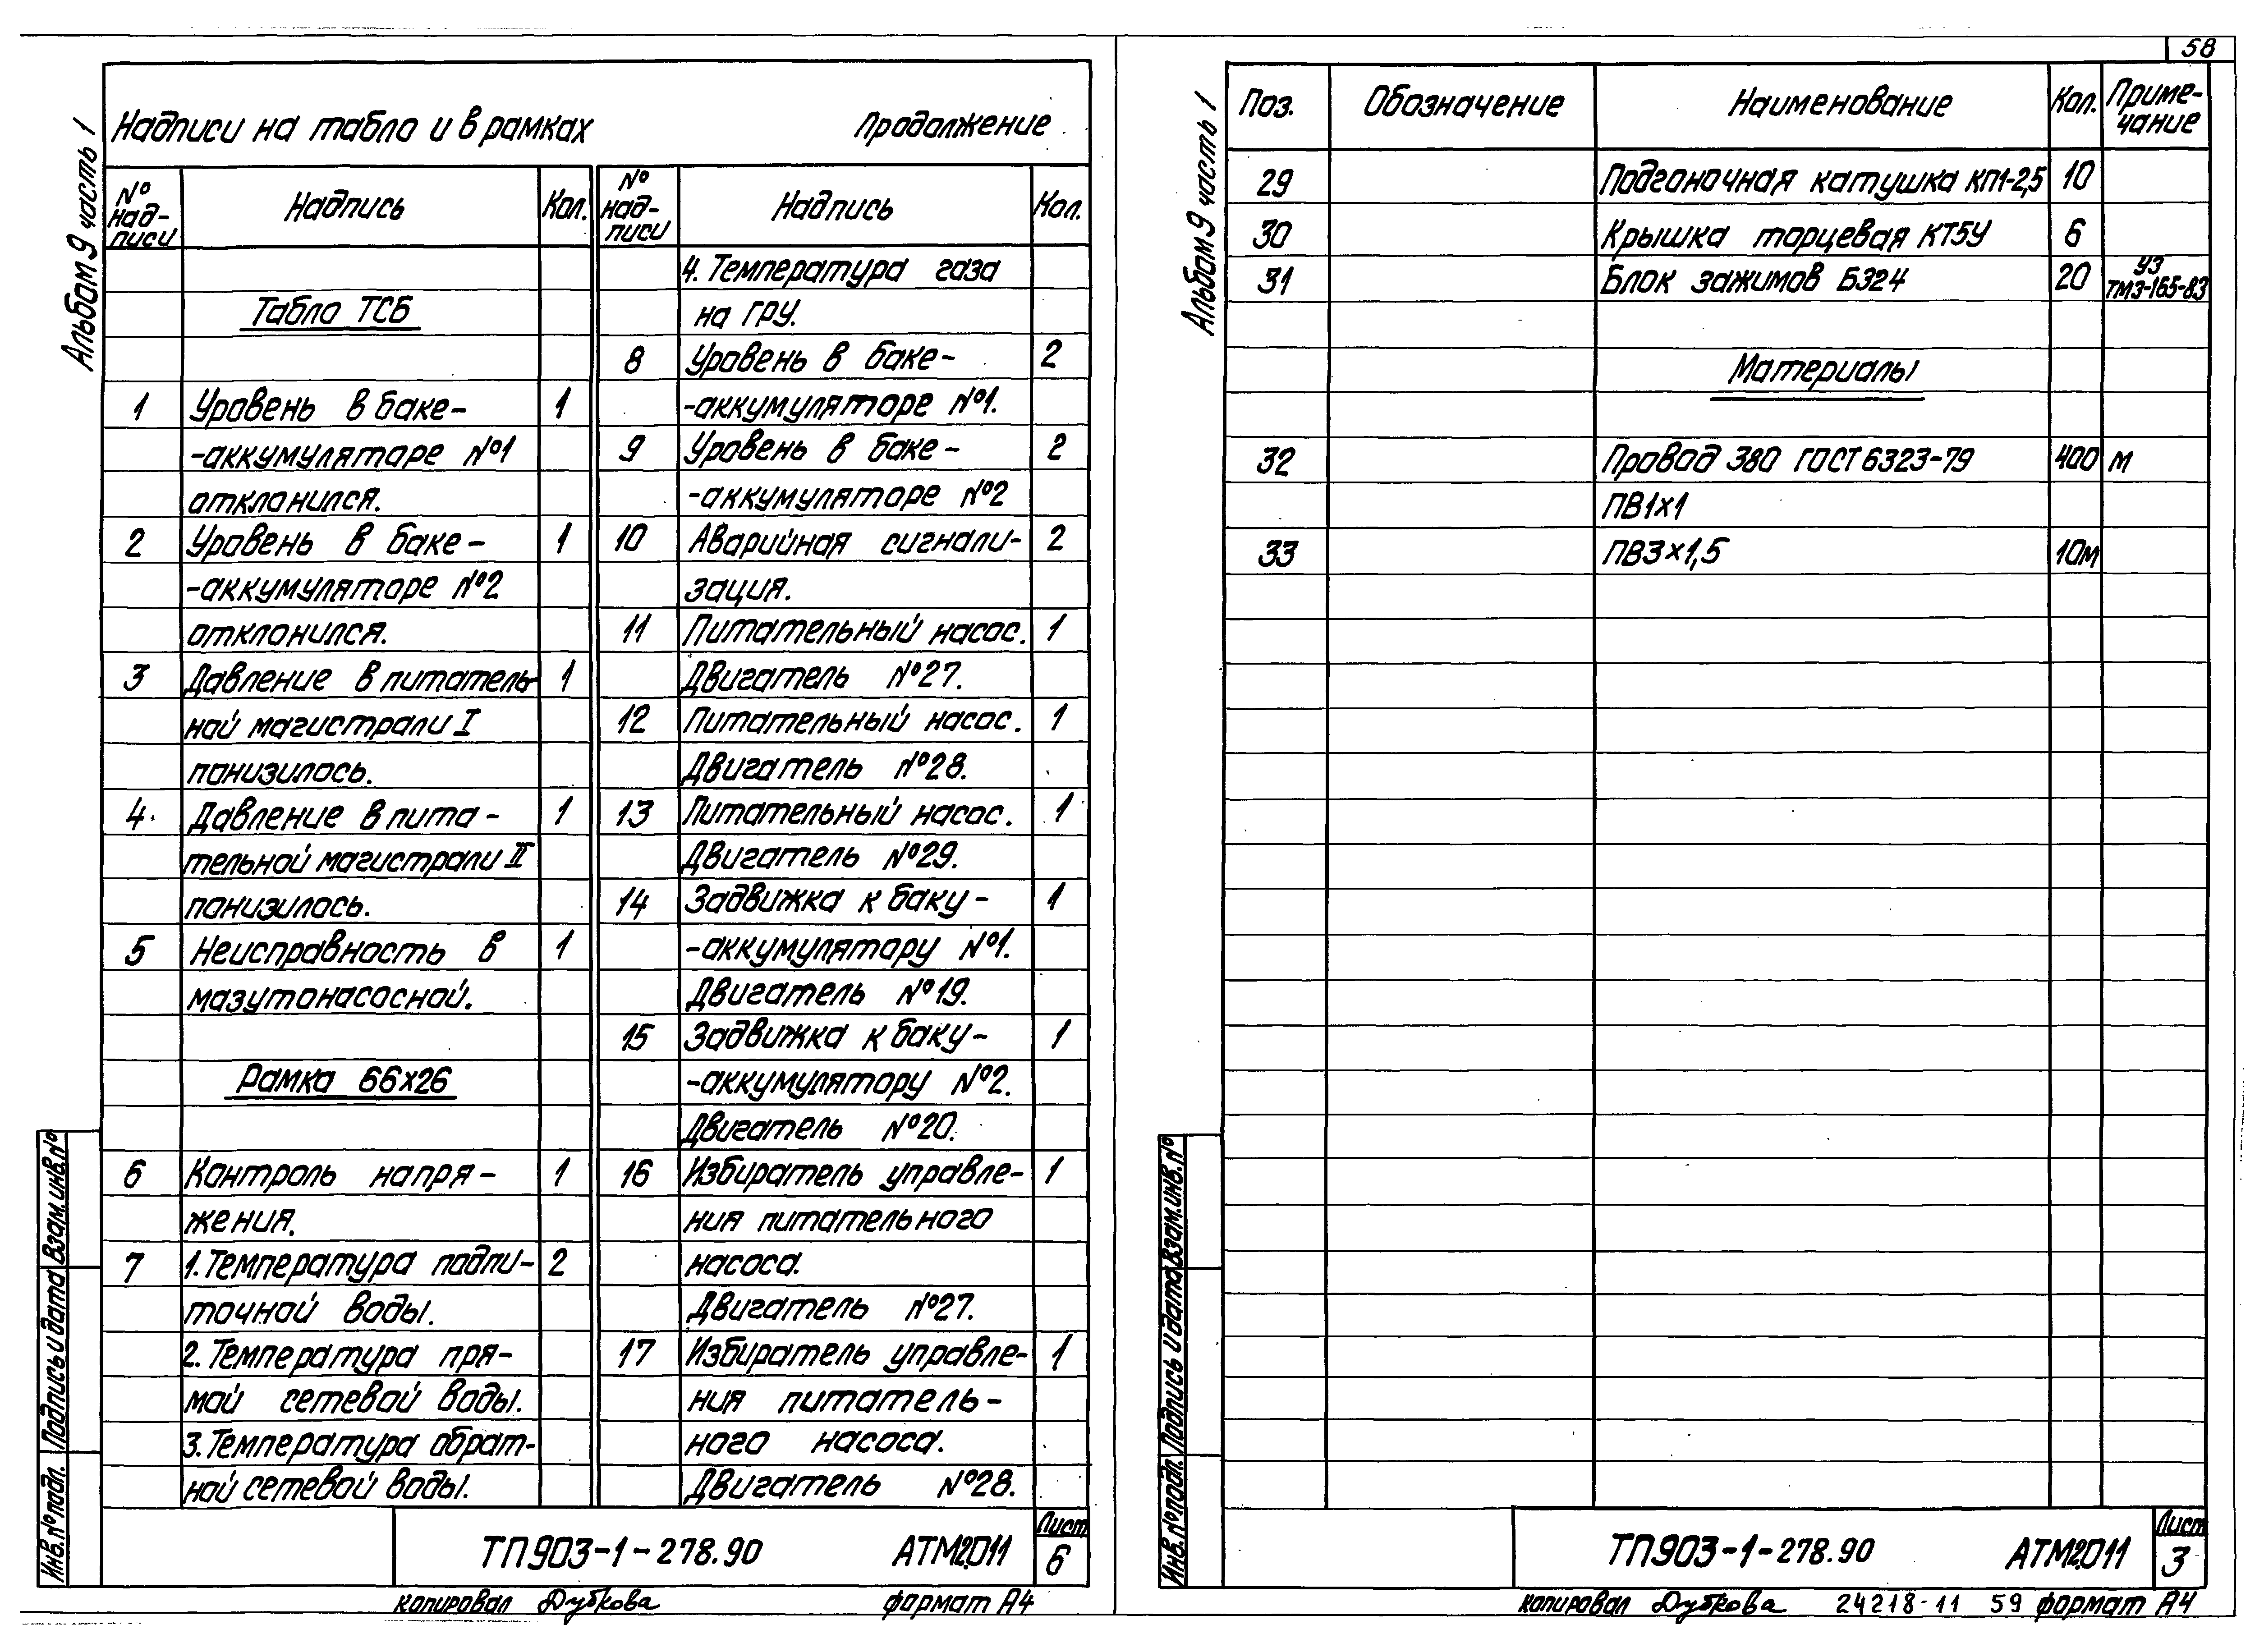 58
Альбом 9 часть 1
Надписи на табло и в рамках Продолжение
№ над- писи Надпись Кол. № над- писи Надпись Кол.
Табло ТСБ
1 Уровень в баке- 1
-аккумуляторе №1
отклонился.
2 Уровень в баке- 1
-аккумуляторе №2
отклонился.
3 Давление в питатель- 1
ной магистрали I
понизилось.
4 Давление в пита- 1
тельной магистрали II
понизилось.
5 Неисправность в 1
мазутонасосной.
Рамка 66х26
6 Контроль напря- 1
жения.
7 1. Температура подпи- 2
точной воды.
2. Температура пря-
мой сетевой воды.
3. Температура обрат-
ной сетевой воды.
4. Температура газа
на ГРУ.
8 Уровень в баке- 2
-аккумуляторе №1.
9 Уровень в баке- 2
-аккумуляторе №2
10 Аварийная сигнали- 2
зация.
11 Питательный насос. 1
Двигатель №27.
12 Питательный насос. 1
Двигатель №28.
13 Питательный насос. 1
Двигатель №29.
14 Задвижка к баку- 1
-аккумулятору №1.
Двигатель №19.
15 Задвижка к баку- 1
-аккумулятору №2.
Двигатель №20.
16 Избиратель управле- 1
ния питательного
насоса.
Двигатель №27.
17 Избиратель управле- 1
ния питатель-
ного насоса.
Двигатель №28.
Взам. инв. №
Подпись и дата
Инв. № подл.
ТП903-1-278.90 АТМ2.011 Лист 6
копировал Дубкова формат А4
Альбом 9 часть 1
Поз. Обозначение Наименование Кол. Приме- чание
29 Подгоночная катушка КП1-2,5 10
30 Крышка торцевая КТ5У 6
31 Блок зажимов Б324 20 У3 ТМ3-165-83
Материалы
32 Провод 380 ГОСТ 6323-79 400 м
ПВ1х1
33 ПВ3х1,5 10м
Взам. инв. №
Подпись и дата
Инв. № подл.
ТП903-1-278.90 АТМ2.011 Лист 3
копировал Дубкова 24218-11 59 формат А4